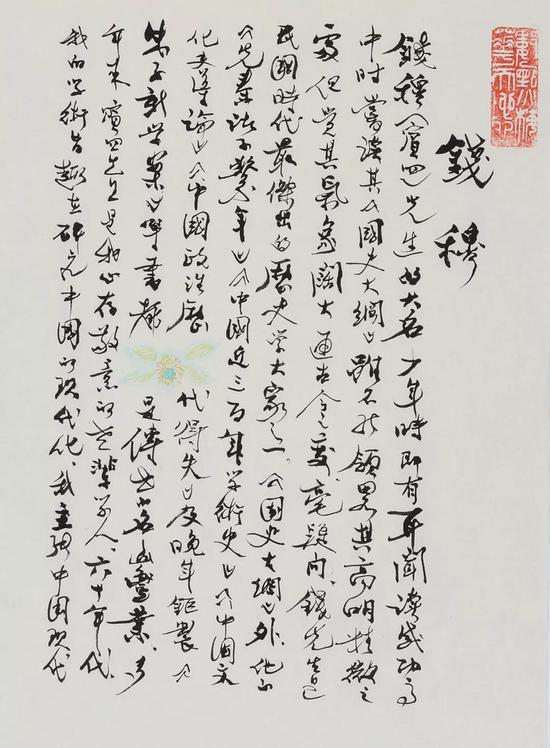 錢穆
錢穆《賓四》先生的大名，少年時即有耳聞，讀成功高
中時，嘗讀其《國史大綱》，雖不能領略其高明精微之
處，但覺其氣象闊大，通古今之變。毫無疑問，錢先生是
民國時代最傑出的歷史學大家之一。《國史大綱》外，他的
《先秦諸子繫年》《中國近三百年學術史》《中國文
化史導論》《中國政治歷代得失》及晚年鉅製《
朱子新學案》等書都是傳世名山事業。多
年來賓四先生是我心存敬意的老輩學人。六十年代，
我的學術旨趣在研究中國的現代化，我主張中國現代